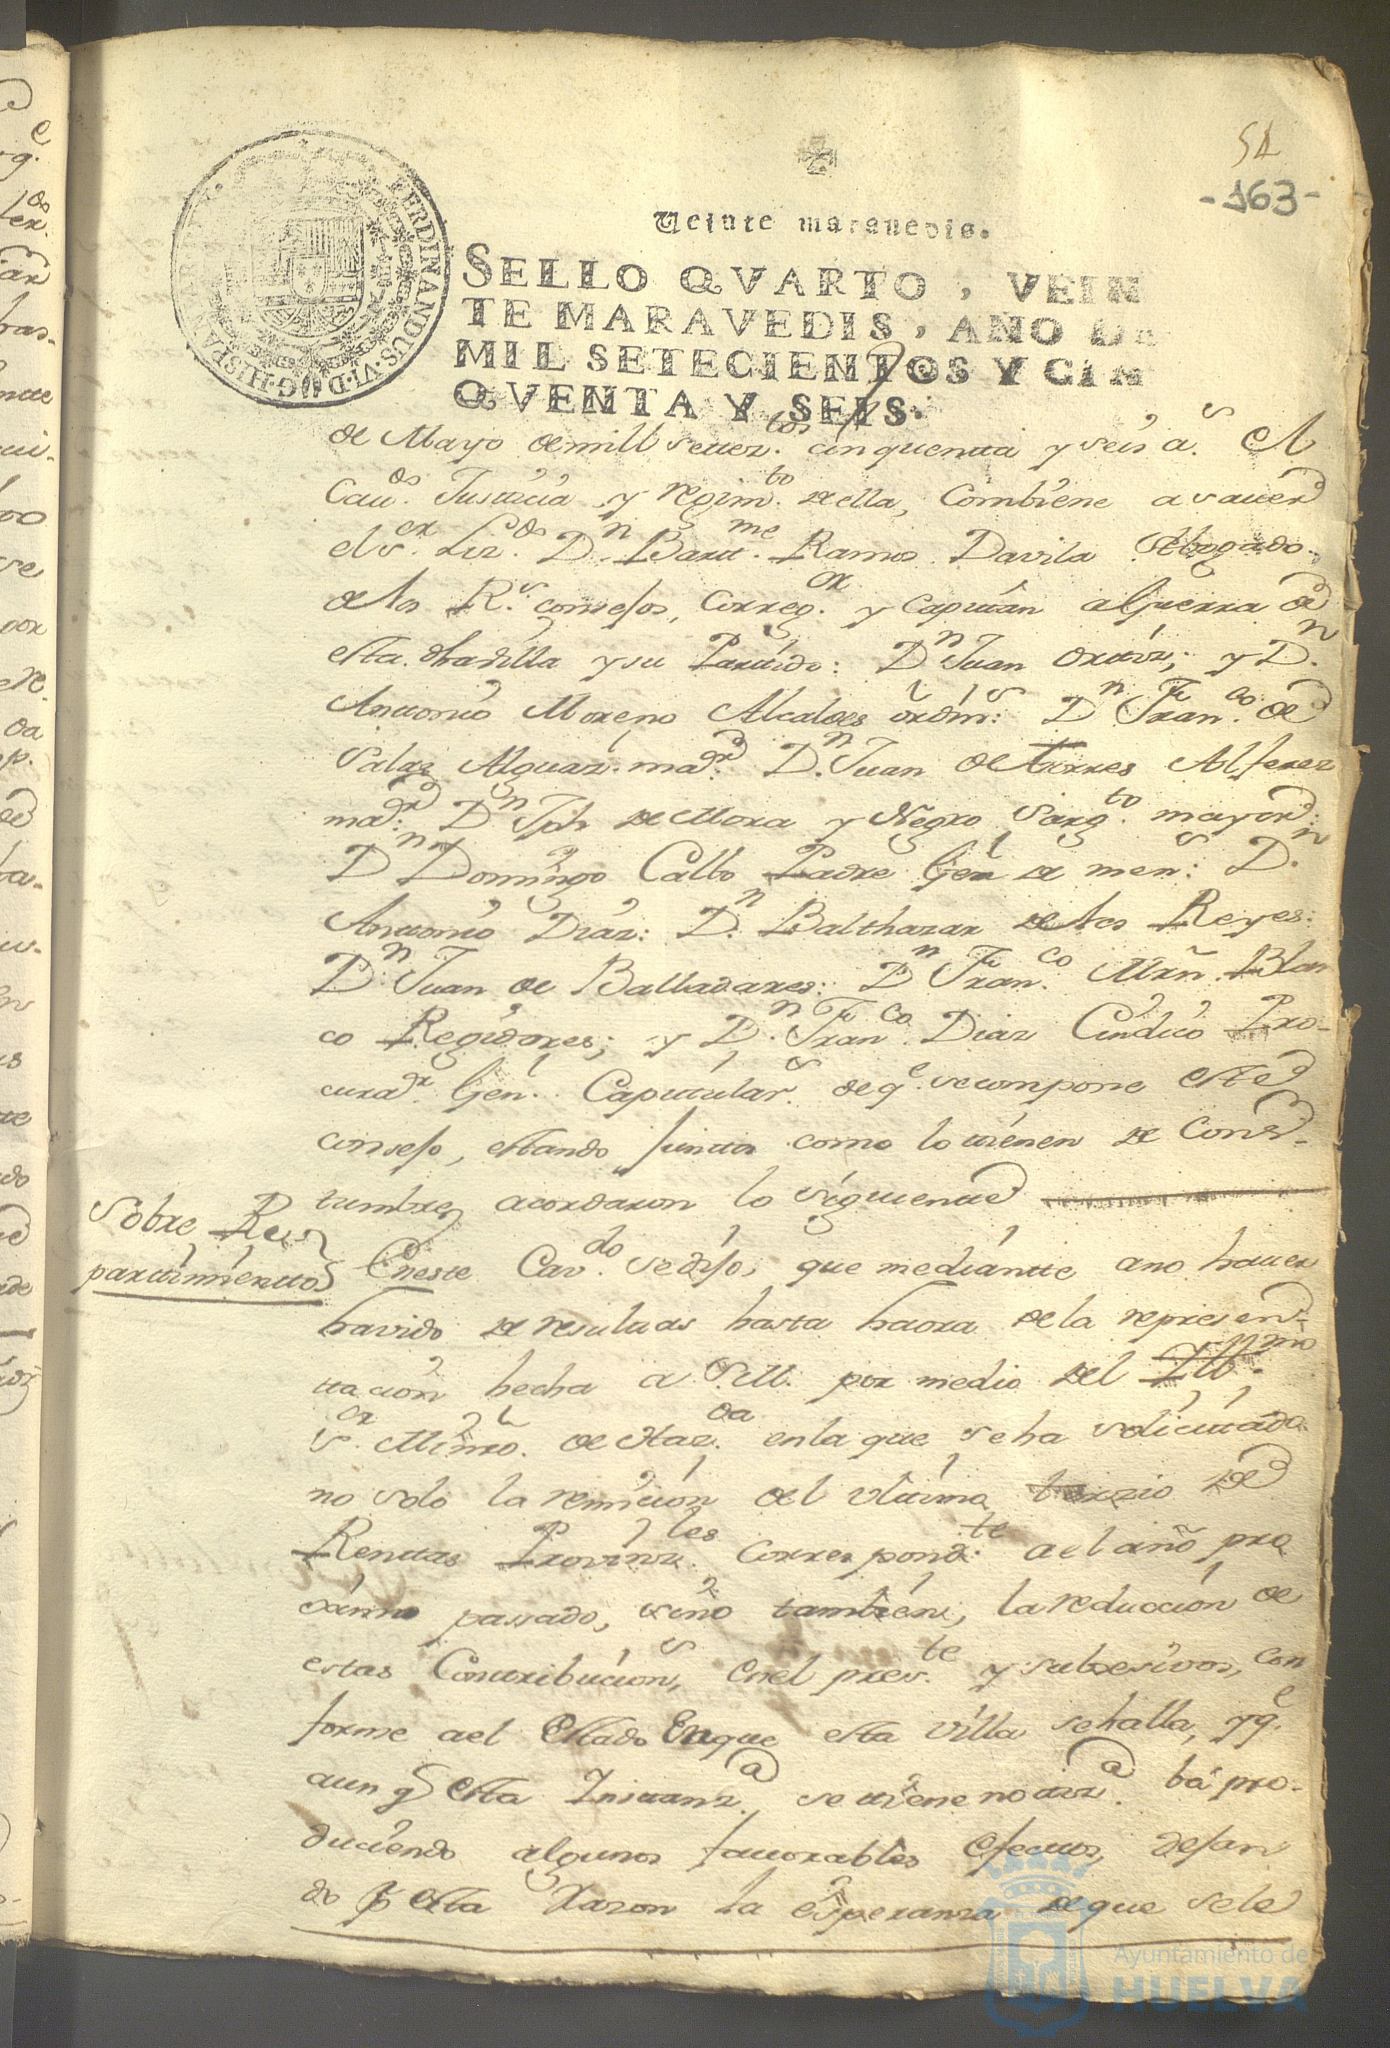 54
-163-
Veinte maravedis.
SELLO QVARTO, VEIN
TE MARAVEDIS, AÑO DE
MIL SETECIENTOS Y CIN
QVENTA Y SEIS.
FERDINANDUS·VI·D·G·HISPANIAR·REX·
de Mayo de mill settez.tos cinquentta y seis a.s El
Cav.do Justticia, y regim.to de ella, combiene a saver
el s.or Liz.do D.n Bartt.me Ramos Davila Abogado
de los R.s consejos, Correg.or y Capittán a Guerra de
esta d.ha villa y su Parttido: D.n Juan Orttiz; y D.n
Anttonio Moreno Alcaldes ordin.s: D.n Fran.co de
Salas Alguaz. maor. D.n Juan de Torres Alferez
maor: D.n Jph de Mora y Negro Sarg.to mayor:
D.n Domingo Calbo Padre Gen.l de men.s: D.n
Anttonio Diaz: D.n Balthazar de los Reyes:
D.n Juan de Balladares: D.n Fran.co Mrñ. Blan
co Regidores; y D.n Fran.co Diaz Cindico Pro-
curad.r Gen.l Capittular.s de q.e se compone este
consejo, estando junttos como lo ttienen de Cons-
tumbre, acordaron lo siguientte
Sobre Re-
parttimienttos
En este Cav.do se dijo, que mediantte a no haver
havido de resulttas hasta haora de la represen-
ttación hecha a S.M. por medio del Ill.mo
s.or Minro. de Haz.da en la que se ha solicittado
no solo la remición del ulttimo terzio de
Renttas Provinz.les correspond.te a el año pro
ximo passado, sino también, la reducción de
estas Conttribucion.s, en el pres.te y subcesivos, con
forme a el Estado En que esta villa se halla, y q.e
aunq esta Insttanz.a, se ttiene nottiz.a ba pro-
duciendo algunos favorables efecttos, dejan
do p esta razon la esperanza de que se le
Ayuntamiento de
HUELVA